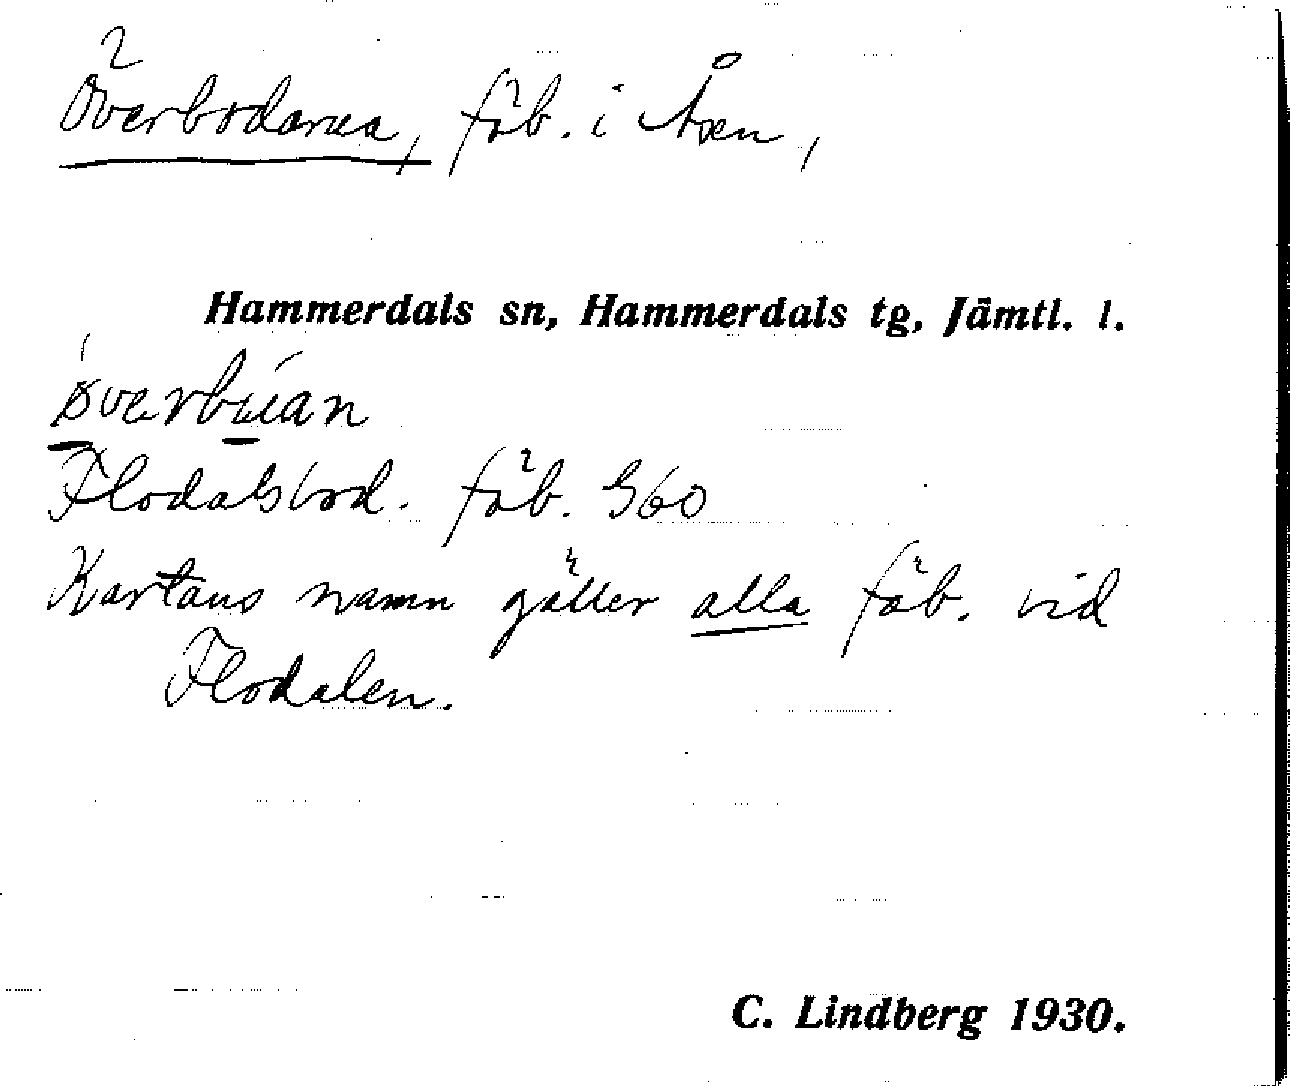 Överbodarna, fäb. i Åsen,
Hammerdals sn, Hammerdals tg, Jämtl. l.
øverbúan
Flodalsbod. fäb. 360
Kartans namn gäller alla fäb. vid
Flodalen.
C. Lindberg 1930.